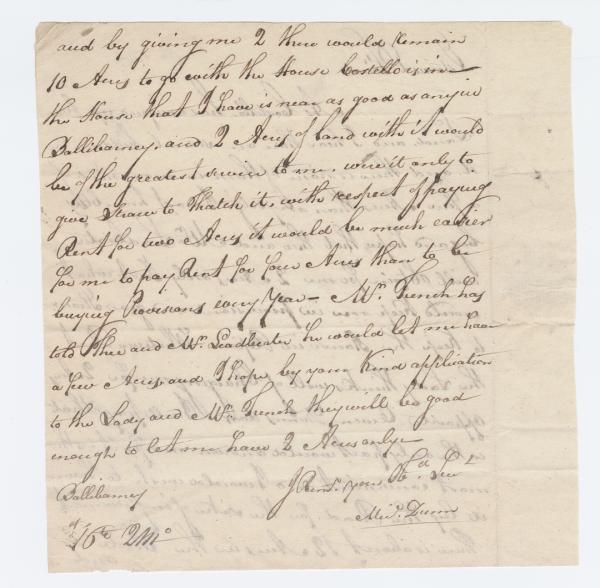 and by giving me 2 there would remain
10 Acres to go with the House Costello is in
the House that I have is near as good as any in
Ballibarney, and 2 Acres of land with it would
be of the greatest service to me, were it only to
give Straw to thatch it, with respect of paying
Rent for two Acres it would be much easier
for me to pay Rent for four Acres than to be
buying Provisions every Year — Mr. French has
told thee and Mr. Leadbeater he would let me have
a few Acres, and I hope by your Kind application
to the Lady, and Mr. French they will be good
enough to let me have 2 Acres only —
I Remn. your
Ballibarney
Michl. Dunn
16th 2Mo